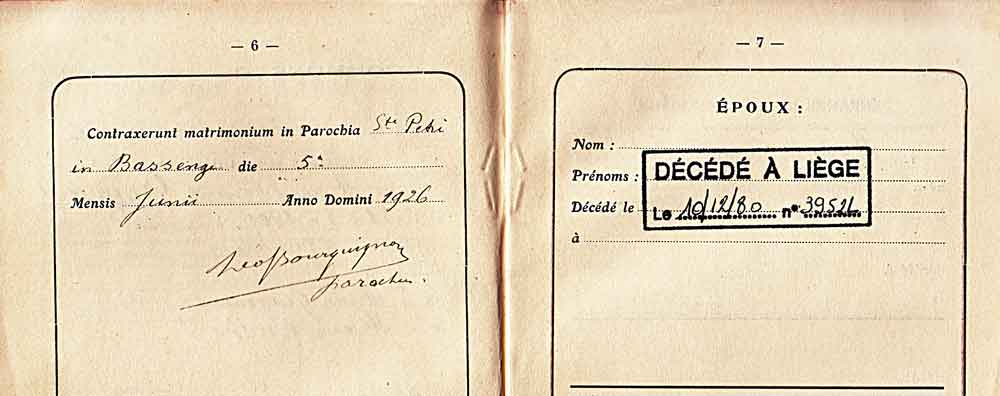 — 6 —
Contraxerunt matrimonium in Parochia Ste Petri
in Bassenge die 5a
Mensis Junii Anno Domini 1926
Leo Bourguignon
parochus.
— 7 —
ÉPOUX :
Nom :
Prénoms :
DÉCÉDÉ À LIÈGE
Décédé le
Le 10/12/80 n°
à